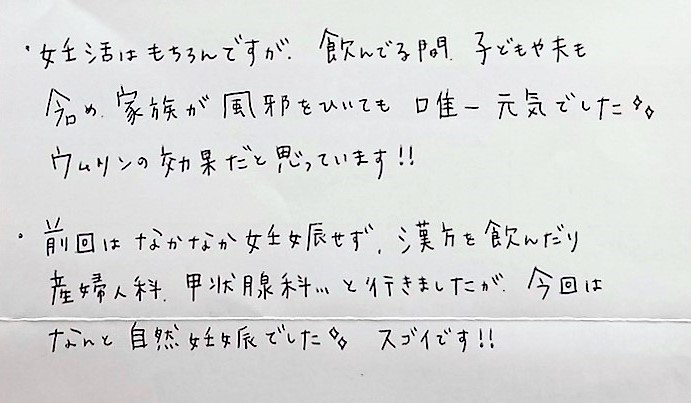 ・妊活はもちろんですが、飲んでる間、子どもや夫も
含め、家族が風邪をひいても唯一元気でした✧✧
ウムリンの効果だと思っています!!
・前回はなかなか妊娠せず、漢方を飲んだり
産婦人科、甲状腺科…と行きましたが、今回は
なんと自然妊娠でした✧✧ スゴイです!!